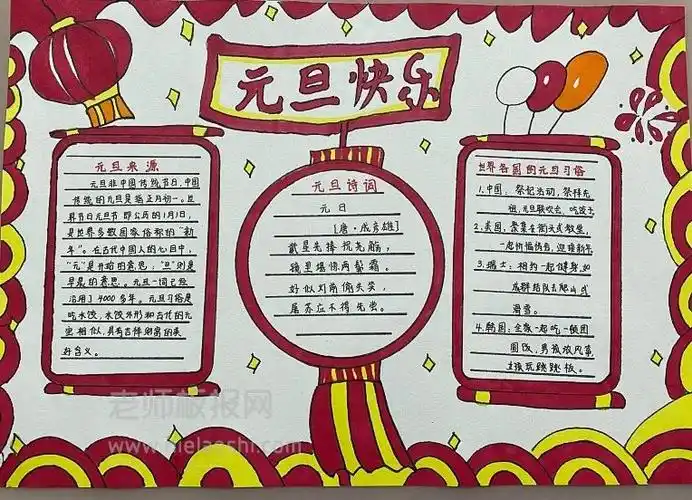 元旦快乐
元旦来源
元旦非中国传统节日,中国
传统的元旦是指正月初一。世
界节日元旦节即公历的1月1日,
是世界多数国家俗称的“新
年”。在古代中国人的心目中,
“元”是开始的意思;“旦”则是
早晨的意思。元旦一词已经
沿用了4000多年。元旦习俗是
吃水饺,水饺外形和古代的元
宝相似,具有吉祥财富的美
好含义。
元旦诗词
元日
[唐·成彦雄]
戴星先捧祝尧觞,
镜里堪惊两鬓霜。
好似灯前偷失笑,
屠苏应不得先尝。
世界各国的元旦习俗
1.中国:祭祀活动,祭拜先
祖,元旦联欢会,吃饺子
2.美国:聚集在街头或教堂,
一起祈福祷告,迎接新年
3.瑞士:相约一起健身,如
成群结队去爬山或
滑雪。
4.韩国:全家一起吃一顿团
圆饭,男孩放风筝
女孩玩跳跳板。
老师板报网